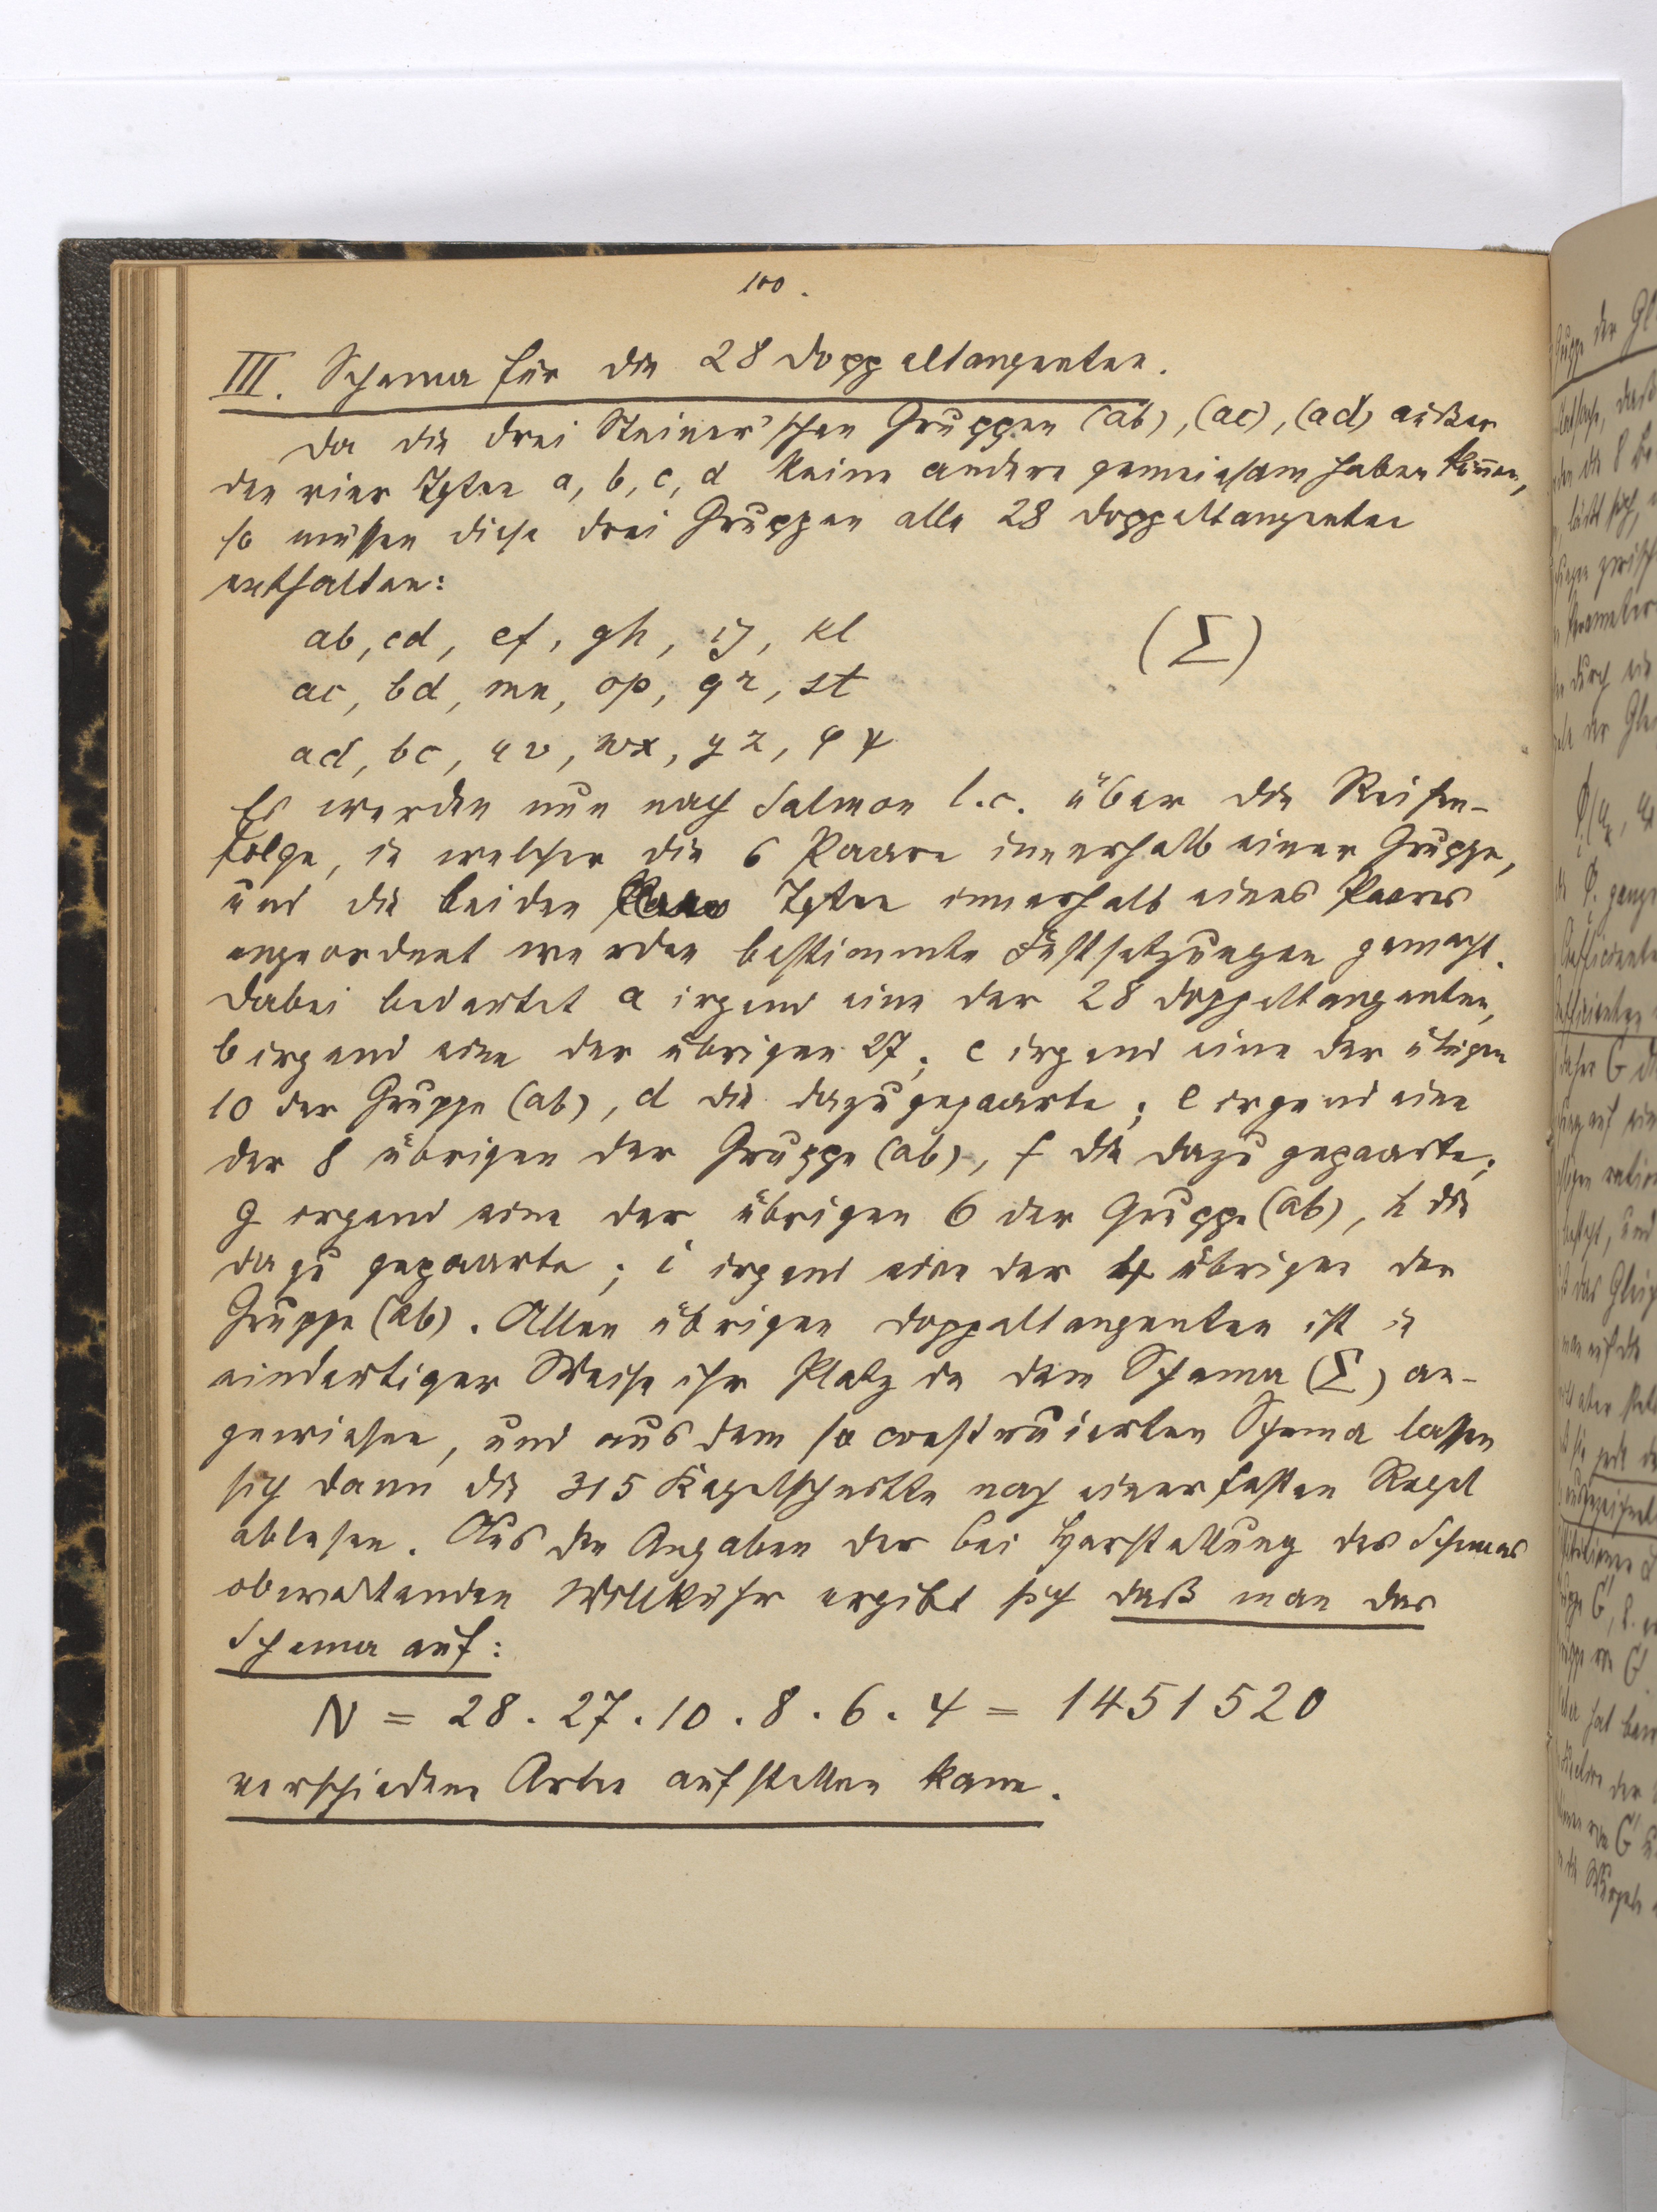 100.
III. Schema für die 28 Doppeltangenten.
Da die drei Steiner'schen Gruppen (ab), (ac), (ad) außer
den vier Tgten a, b, c, d keine andere gemeinsam haben können,
so müssen diese drei Gruppen alle 28 Doppeltangenten
enthalten:
ab, cd, ef, gh, ij, kl (Σ)
ac, bd, mn, op, qr, st
ad, bc, uv, wx, yz, φψ
Es werden nun nach Salmon l.c. über die Reihen-
folge, in welcher die 6 Paare innerhalb einer Gruppe,
und die beiden Tgten innerhalb eines Paares
angeordnet werden bestimmte Festsetzungen gemacht.
Dabei bedeutet a irgend eine der 28 Doppeltangenten,
b irgend eine der übrigen 27; c irgend eine der übrigen
10 der Gruppe (ab), d die dazugepaarte; e irgend eine
der 8 übrigen der Gruppe (ab), f die dazu gepaarte;
g irgend eine der übrigen 6 der Gruppe (ab), h die
dazu gepaarte; i irgend eine der 4 übrigen der
Gruppe (ab). Allen übrigen Doppeltangenten ist in
eindeutiger Weise ihr Platz in dem Schema (Σ) an-
gewiesen, und aus dem so construierten Schema lassen
sich dann die 315 Kegelschnitte nach einer festen Regel
ablesen. Aus den Angaben der bei Herstellung des Schemas
obwaltenden Willkühr ergibt sich daß man das
Schema auf:
N = 28 . 27 . 10 . 8 . 6 . 4 = 1451520
verschiedene Arten aufstellen kann.